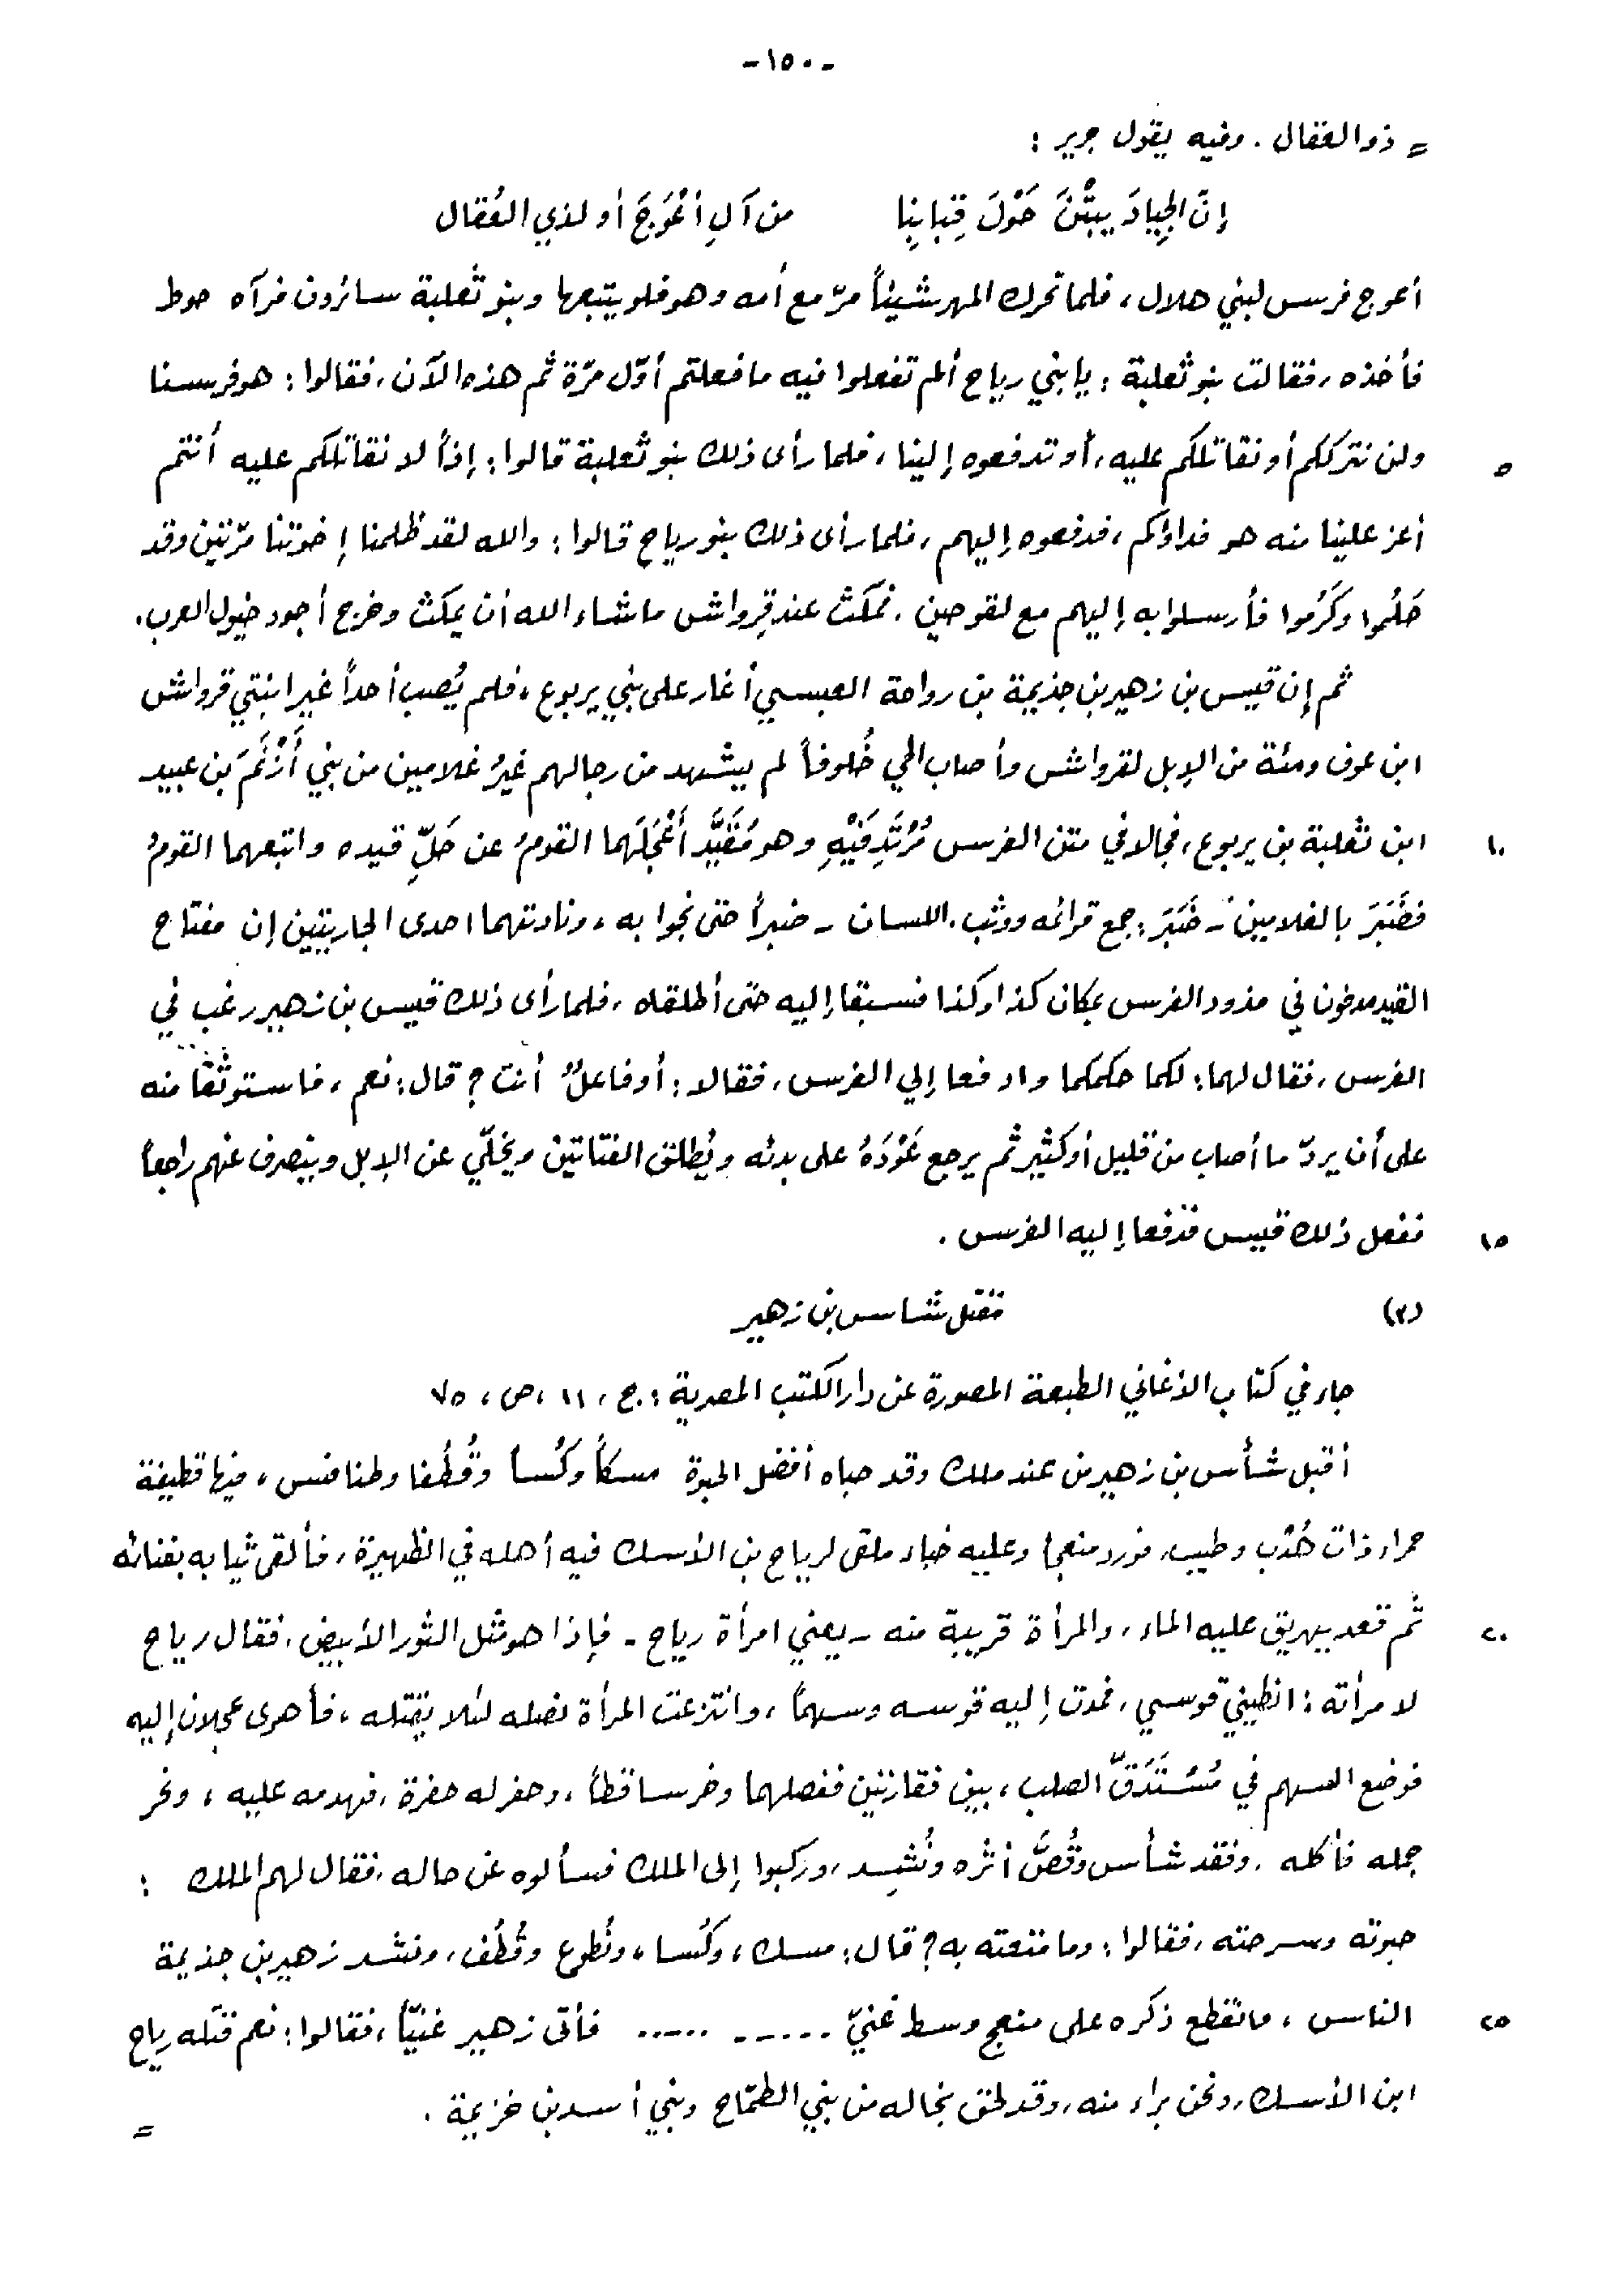 -١٥٠-
= ذو العقال. وفيه يقول جرير :
إنّ الجِيادَ يبِتْنَ حَوْلَ قِبابِنِا من آلِ أعْوَجَ أو لذي العُقال
أعوج فرس لبني هلال، فلما تحرك المهر شيئاً مرّ مع أمه وهو فلو يتبعها وبنو ثعلبة سائرون فرآه حوط
فأخذه، فقالت بنو ثعلبة : يا بني رياح ألم تفعلوا فيه ما فعلتم أوّل مرّة ثم هذه الآن، فقالوا : هو فرسنا
ولن نترككم أو نقاتلكم عليه، أو تدفعوه إلينا، فلما رأى ذلك بنو ثعلبة قالوا : إذاً لا نقاتلكم عليه أنتم ٥
أعز علينا منه هو فداؤكم، فدفعوه إليهم، فلما رأى ذلك بنو رياح قالوا : والله لقد ظلمنا إخوتنا مرّتين وقد
حَلُموا وكَرُموا فأرسلوا به إليهم مع لقوحين. فمكث عند قِرواش ما شاء الله أن يمكث وخرج أجود خيول العرب.
ثم إن قيس بن زهير بن جذيمة بن رواحة العبسي أغار على بني يربوع، فلم يُصب أحداً غير ابنتي قرواش
ابن عوف ومئة من الإبل لقرواش وأصاب الحي خُلوفاً لم يشهد من رجالهم غيرُ غلامين من بني أَزْنَمَ بن عبيد
ابن ثعلبة بن يربوع، فجالا في متن الفرس مُرْتَدِفَيْهِ وهو مُقَيَّد أَعْجَلَهما القومُ عن حَلِّ قيده واتبعهما القومُ ١٠
فضَبَرَ بالغلامين - ضَبَرَ : جمع قوائمه ووثب. اللسان - ضبراً حتى نجوا به، ونادتهما احدى الجاريتين إن مفتاح
القيد مدفون في مذود الفرس بمكان كذا وكذا فسبقا إليه حتى أطلقاه، فلما رأى ذلك قيس بن زهير رغب في
الفرس، فقال لهما : لكما حكمكما وادفعا إلي الفرس، فقالا : أو فاعلٌ أنت ؟ قال : نعم، فاستوثقا منه
على أن يردّ ما أصاب من قليل أو كثير ثم يرجع عَوْدَهُ على بدئه ويُطلق الفتاتين ويخلّي عن الإبل وينصرف عنهم راجعاً
ففعل ذلك قيس فدفعا إليه الفرس. ١٥
(٢) مقتل شاس بن زهير
جاء في كتاب الأغاني الطبعة المصورة عن دار الكتب المصرية : ج، ١١ ،ص، ٧٥
أقبل شأس بن زهير من عند ملك وقد حباه أفضل الحبوة مسكاً وكُساً وقُطُفا وطنافس، فيها قطيفة
حمراء ذات هُدْب وطيب، فورد منعجا وعليه خباء ملقى لرياح بن الأسك فيه أهله في الظهيرة، فألقى ثيابه بفنائه
ثم قعد يهريق عليه الماء، والمرأة قريبة منه - يعني امرأة رياح - فإذا هو مثل الثور الأبيض، فقال رياح ٢٠
لامرأته : انطيني قوسي، فمدت إليه قوسه وسهماً، وانتزعت المرأة نصله لئلا يقتله، فأهوى عجلان إليه
فوضع السهم في مُسْتَدَقّ الصلب، بين فقارتين ففصلهما وخر ساقطاً، وحفر له حفرة، فهدمه عليه، ونحر
جمله فأكله. وفقد شأس وقُصَّ أثره ونُشِد، وركبوا إلى الملك فسألوه عن حاله، فقال لهم الملك :
حبوته وسرحته، فقالوا : وما متعته به ؟ قال : مسك، وكُسا، ونُطوع وقُطُف، ونشد زهير بن جذيمة
الناس، فانقطع ذكره على منعج وسط غنيّ ...... ...... فأتى زهير غنيّاً، فقالوا : نعم قتله رياح ٢٥
ابن الأسك، ونحن براء منه، وقد لحق بخاله من بني الطمّاح وبني أسد بن خزيمة.
=